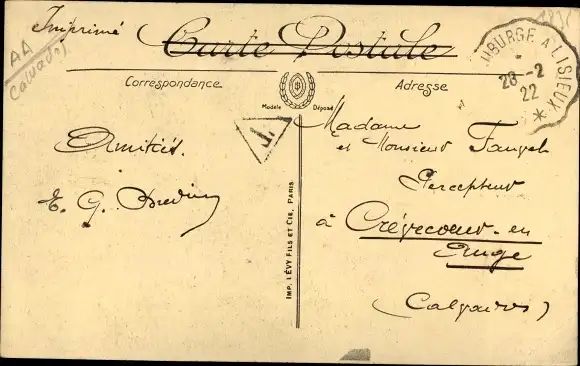 Imprimé
Carte Postale
AA
Calvados
UBURGE A LISIEUX
28 -2
22
*
Correspondance
Adresse
Modèle Déposé
T.
Amitiés.
E. G.
Madame
et Monsieur
Percepteur
à Crèvecoeur-en
Auge
(Calvados)
IMP. LÉVY FILS ET CIE, PARIS